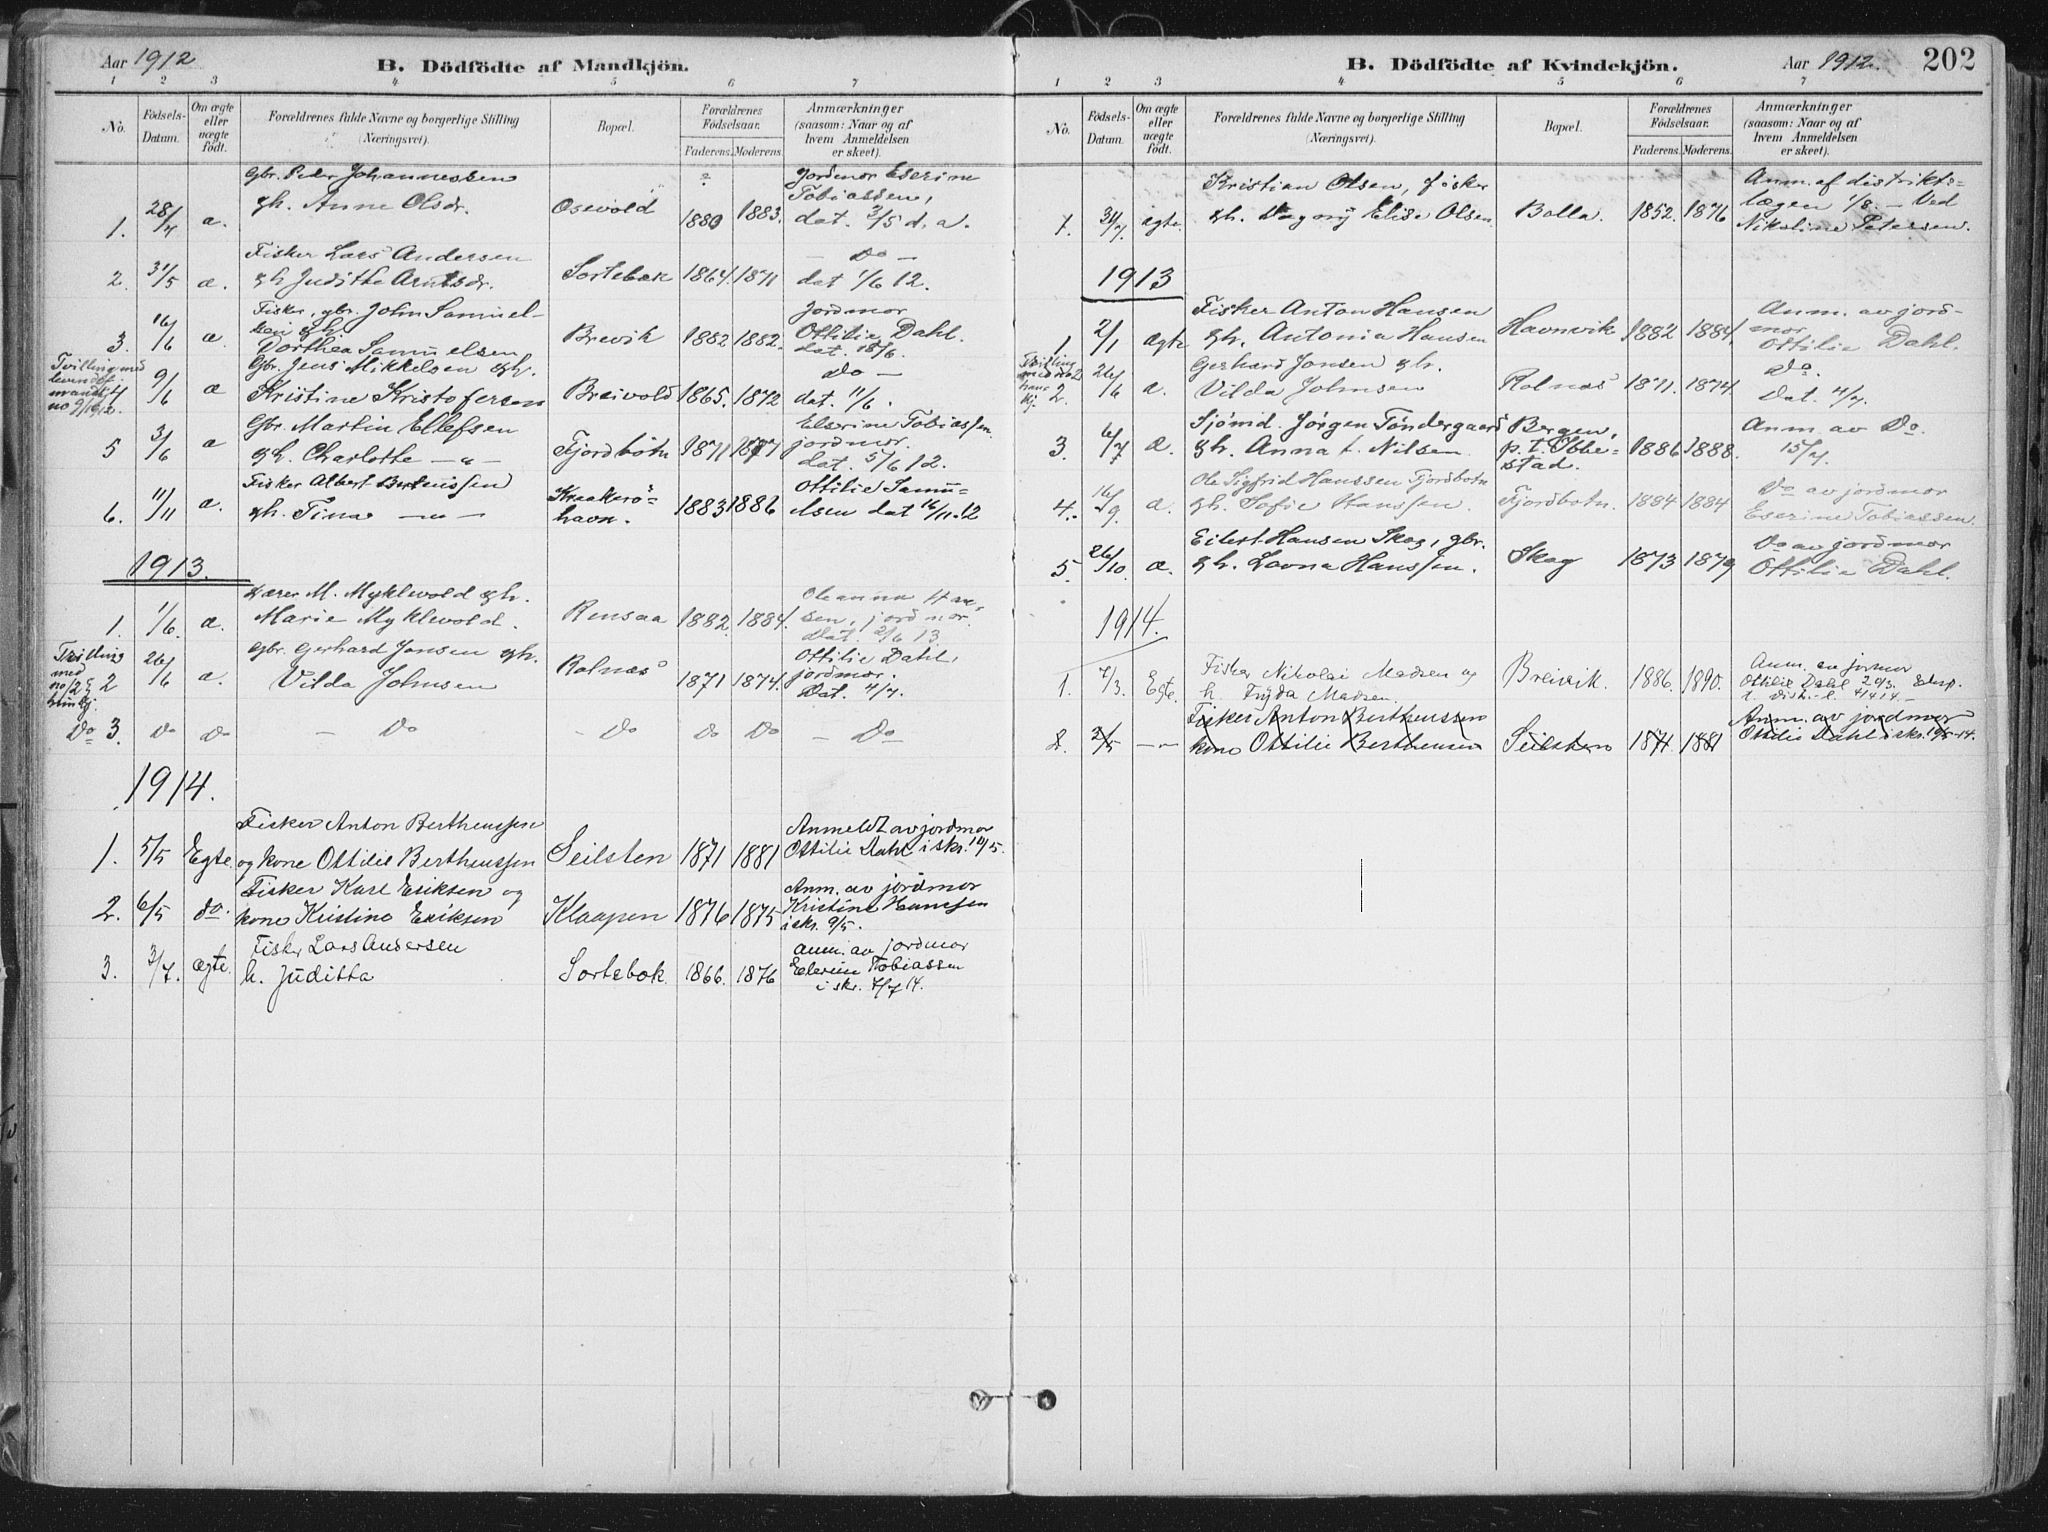 Aar 1912
B. Dödfödte af Mandkjön.
1 2 3 4 5 6 7
No.
Födsels-Datum.
Om ægte eller uægte födt.
Forældrenes fulde Navne og borgerlige Stilling (Næringsvei).
Bopæl.
Forældrenes Födselsaar.
Faderens. Moderens.
Anmærkninger (saasom: Naar og af hvem Anmeldelsen er skeet).
Gbr. Peder Johannessen ? Jordmor Eserine
1. 28/4 a. gh. Anne Olsdr. Osevold 1880 1883. Tobiassen, dat. 3/5 d. a.
Fisker Lars Andersen — Do —
2. 31/5 a. gh Judithe Arntsdr. Sortebæk 1864. 1871 dat 1/6 12.
Fisker, gbr. John Samuel- Jordmor
3. 16/6 a. sen gh. Brevik 1882 1882. Ottilie Dahl.
Dorthea Samuelsen dat. 18/6.
Tvilling med levendef. mandkj. no 9/1912.
Gbr. Jens Mikkelsen gh. Do —
4 9/6 a Kristine Kristofersen Breivold 1865. 1872 dat. 11/6.
Gbr. Martin Ellefsen Elserine Tobiassen
5 3/6 a gh. Charlotte — " — Fjordbotn 1871 1877 jordmor. dat. 5/6 12.
Fisker Albert Berteussen Ottilie Samu-
6. 11/11 a. gh. Tina — " — Kraakerö- 1883 1886 elsen dat 16/11.12
havn.
1913.
M. Myklevold gh. Oleanna Han-
1. 1/6. a. Marie Myklevold. Rensaa 1882. 1884. sen, jordmor.
Dat. 2/6 13
Trilling med no 2 & 2 kvinkj.
Gbr. Gerhard Jonsen gh. Ottilie Dahl,
2 26/6 a. Vilda Johnsen Rolnæs 1871 1874. jordmor.
Dat. 4/7.
Do 3. Do Do — Do — Do Do Do — Do —
1914.
Fisker Anton Bertheussen Anmeldt av jordmor
1. 5/5 Egte. og kone Ottilie Bertheussen Seilsten 1871 1881 Ottilie Dahl i skr. 10/5.
Fisker Karl Eriksen og Anm. av jordmor
2. 6/5 do. kone Kristine Eriksen Klaapen 1876 1875 Kristine Hanssen
i skr. 9/5.
Fisker Lars Andersen anm. av jordmor
3. 3/7. ægte. h. Juditta Sortebok 1866. 1876 Elerine Tobiassen
i skr. 4/7 14.
B. Dödfödte af Kvindekjön.
Aar 1912.
202
1 2 3 4 5 6 7
No.
Födsels-Datum.
Om ægte eller uægte födt.
Forældrenes fulde Navne og borgerlige Stilling (Næringsvei).
Bopæl.
Forældrenes Födselsaar.
Faderens. Moderens.
Anmærkninger (saasom: Naar og af hvem Anmeldelsen er skeet).
Kristian Olsen, fisker Anm. af distrikts-
1. 31/7 ægte. gh. Dagny Elise Olsen Bolla. 1852. 1876 lægen 1/8. — Ved
Nikoline Petersen.
1913
Fisker Anton Hansen Anm. av jord-
1 2/1 ægte gh. Antonia Hansen Havnvik 1882 1884. mor
Ottilie Dahl.
Trilling med no 2 hank kj.
Gerhard Jonsen gh. Do.
2. 26/6 a. Vilda Johnsen Rolnæs 1871. 1874. Dat. 4/7.
Sjömd. Jörgen Töndergaard Bergen, Anm. av Do.
3. 6/7 a. gh. Anna f. Nilsen p. t. Ibbe- 1886 1888. 15/7.
stad.
Ole Sigfrid Hanssen Fjordbotn Do av jordmor
4. 16/9. a. gh. Sofie Hanssen. Fjordbotn. 1884 1884 Eserine Tobiassen.
Eilert Hansen Skog, gbr. Do av jordmor
5. 26/10. a. gh. Lovna Hanssen. Skog 1873 1879 Ottilie Dahl.
1914.
Fisker Nikolai Madsen og Anm. av jormor
1. 7/3. Egte. h. Fryda Madsen. Breivik. 1886. 1890. Ottilie Dahl 20/3.
Fisker Anton Bertheussen Anm. av jordmor
2. 2/5 — " — kone Ottilie Bertheussen Seilsten 1871 1881 Ottilie Dahl i skr. 10/5-14.